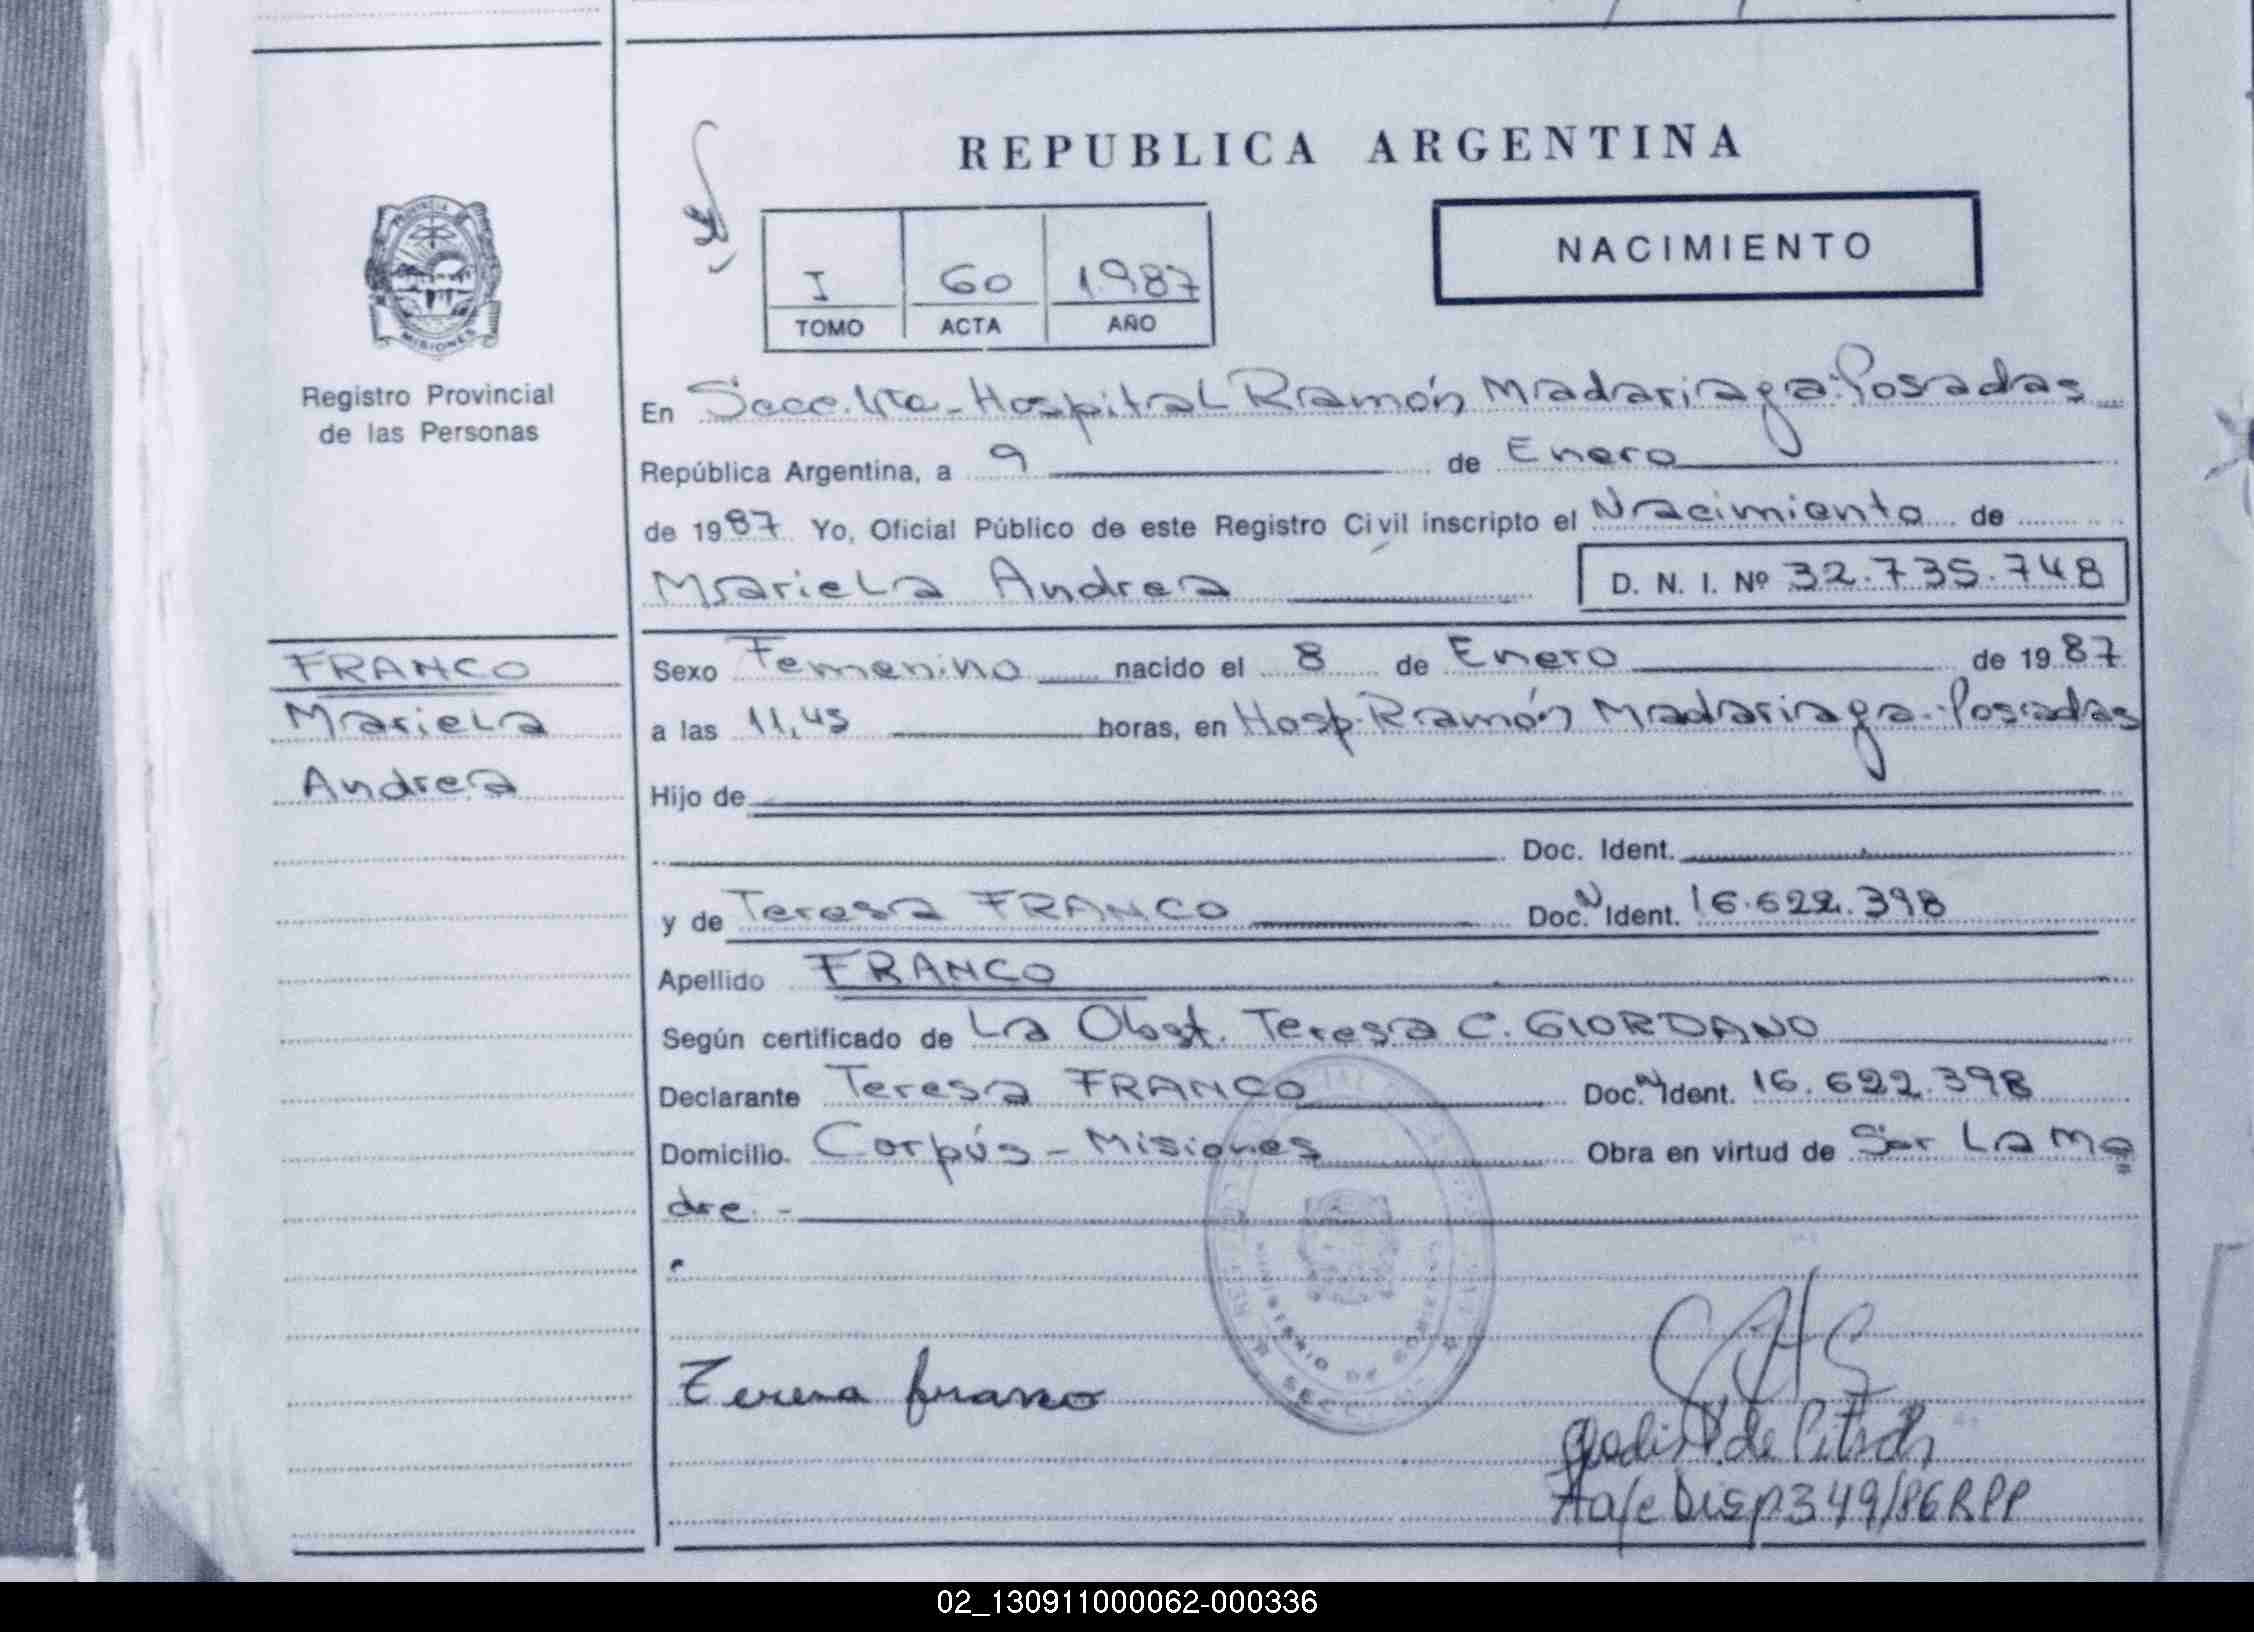 REPUBLICA ARGENTINA
NACIMIENTO
I 60 1987
TOMO ACTA AÑO
PROVINCIA
MISIONES
Registro Provincial
de las Personas
En Secc. 1ra - Hospital Ramón Madariaga - Posadas
República Argentina, a 9 de Enero
de 1987 Yo, Oficial Público de este Registro Civil inscripto el Nacimiento de
Mariela Andrea D. N. I. Nº 32.735.748
FRANCO
Mariela
Andrea
Sexo Femenino nacido el 8 de Enero de 1987
a las 11,45 horas, en Hosp. Ramón Madariaga - Posadas
Hijo de
Doc. Ident.
y de Teresa FRANCO Doc. N Ident. 16.622.398
Apellido FRANCO
Según certificado de La Obst. Teresa C. GIORDANO
Declarante Teresa FRANCO Doc. N Ident. 16.622.398
Domicilio Corpús - Misiones Obra en virtud de Ser La Ma
dre. -
MINISTERIO DE GOBIERNO
Teresa franco
de
Disp 349/86 RPP
02_130911000062-000336